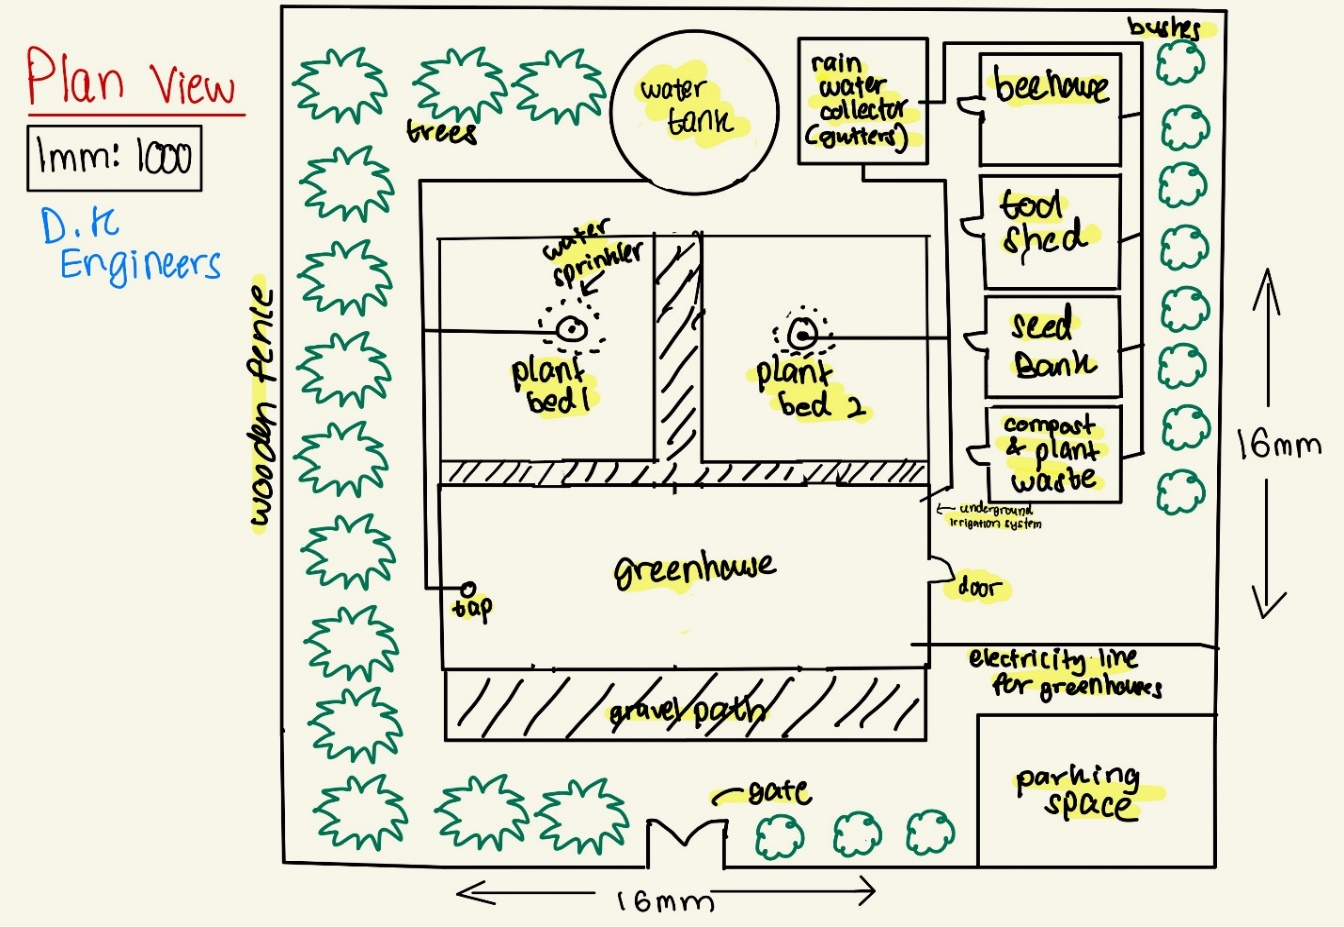 Plan View
1mm: 1000
D.K
Engineers
bushes
trees
water
tank
rain
water
collector
(gutters)
beehouse
tool
shed
seed
Bank
compost
& plant
waste
water
sprinkler
plant
bed 1
plant
bed 2
wooden fence
16mm
underground
irrigation system
greenhouse
door
tap
electricity line
for greenhouses
gravel path
parking
space
gate
16mm